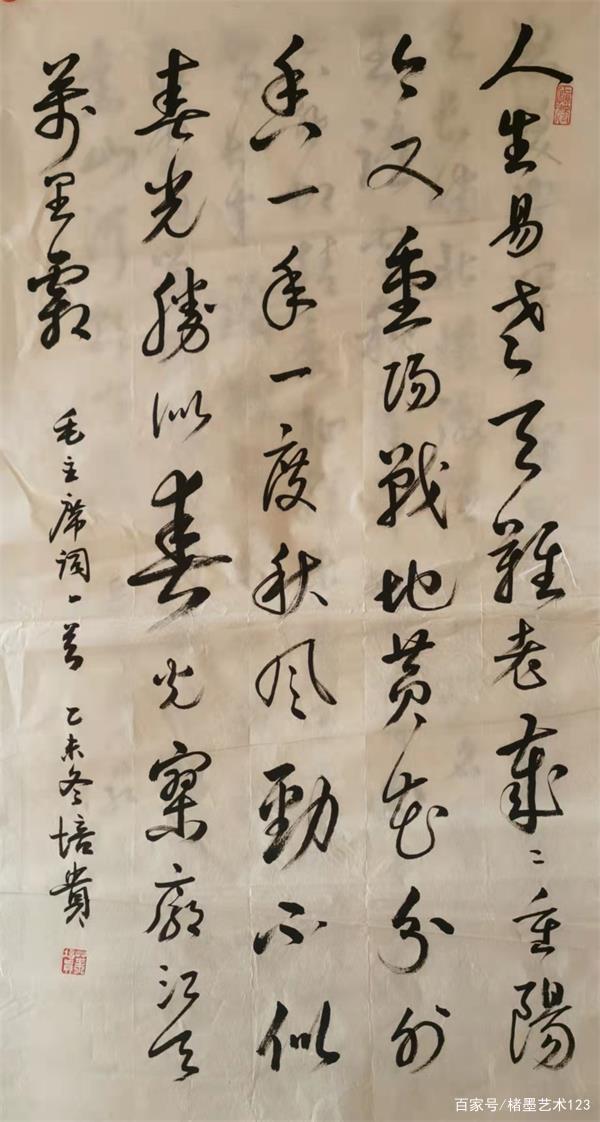 人生易老天難老歲〻重陽
今又重陽戰地黄花分外
香一年一度秋风勁不似
春光勝似春光寥廓江天
萬里霜
毛主席词一首 乙未冬培贵
百家号/楮墨艺术123